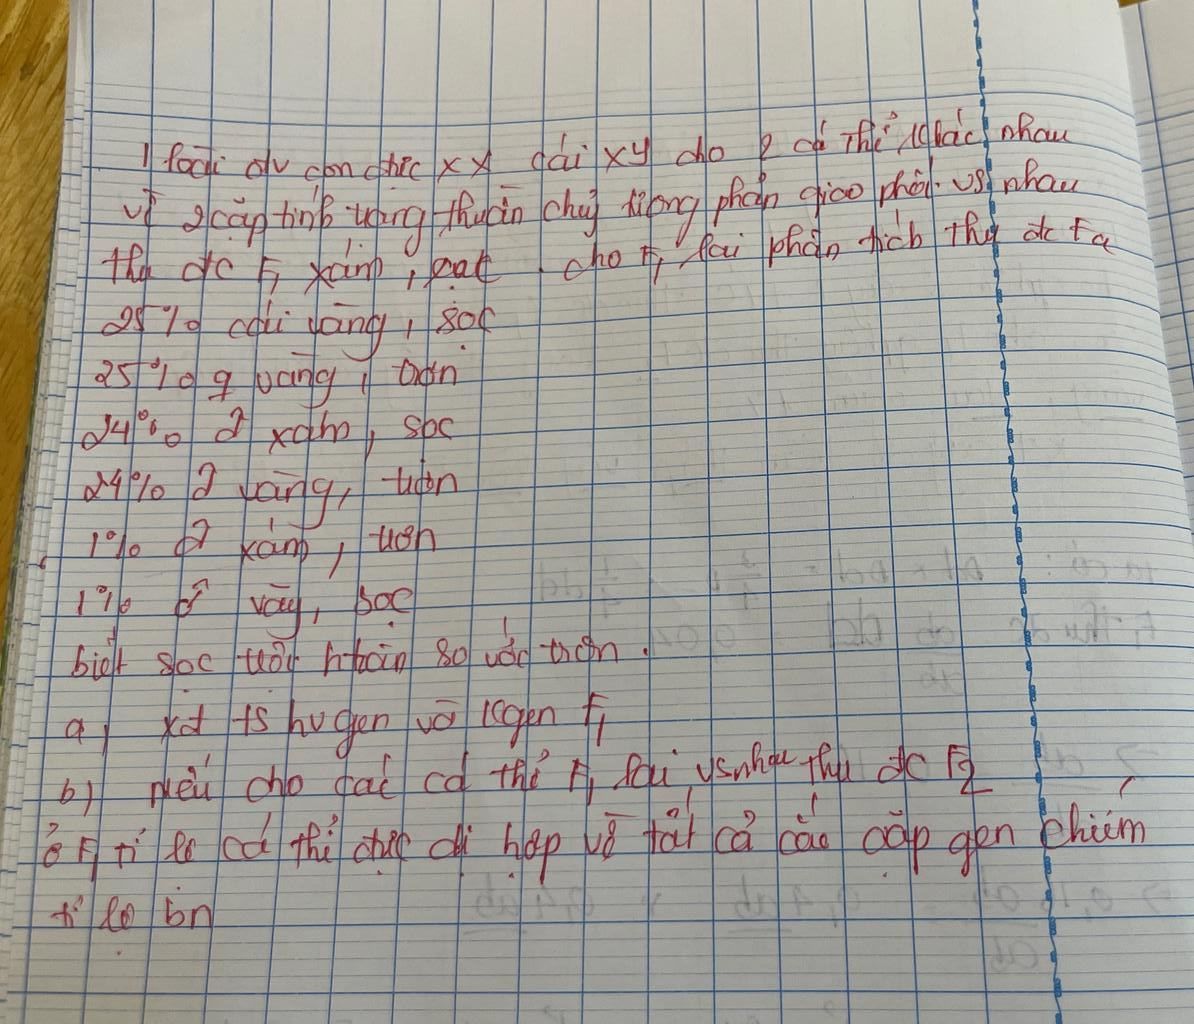 1 loài đv con đực XX cái XY cho 2 cá thể khác nhau
về 2 cặp tính trạng thuần chủng tương phản giao phối vs nhau
thu đc F1 xám, sọc. cho F1 lai phân tích thu đc Fa
25% cái vàng, sọc
25% ♀ vàng, trơn
24% ♂ xám, sọc
24% ♂ vàng, trơn
1% ♂ xám, trơn
1% ♂ vàg, sọc
biết sọc trội htoàn so với trơn.
a, xđ ts hv gen và kgen F1
b) nếu cho các cá thể F1 lai vs nhau thu đc F2
ở F2 tỉ lệ cá thể đực dị hợp về tất cả các cặp gen chiếm
tỉ lệ bn